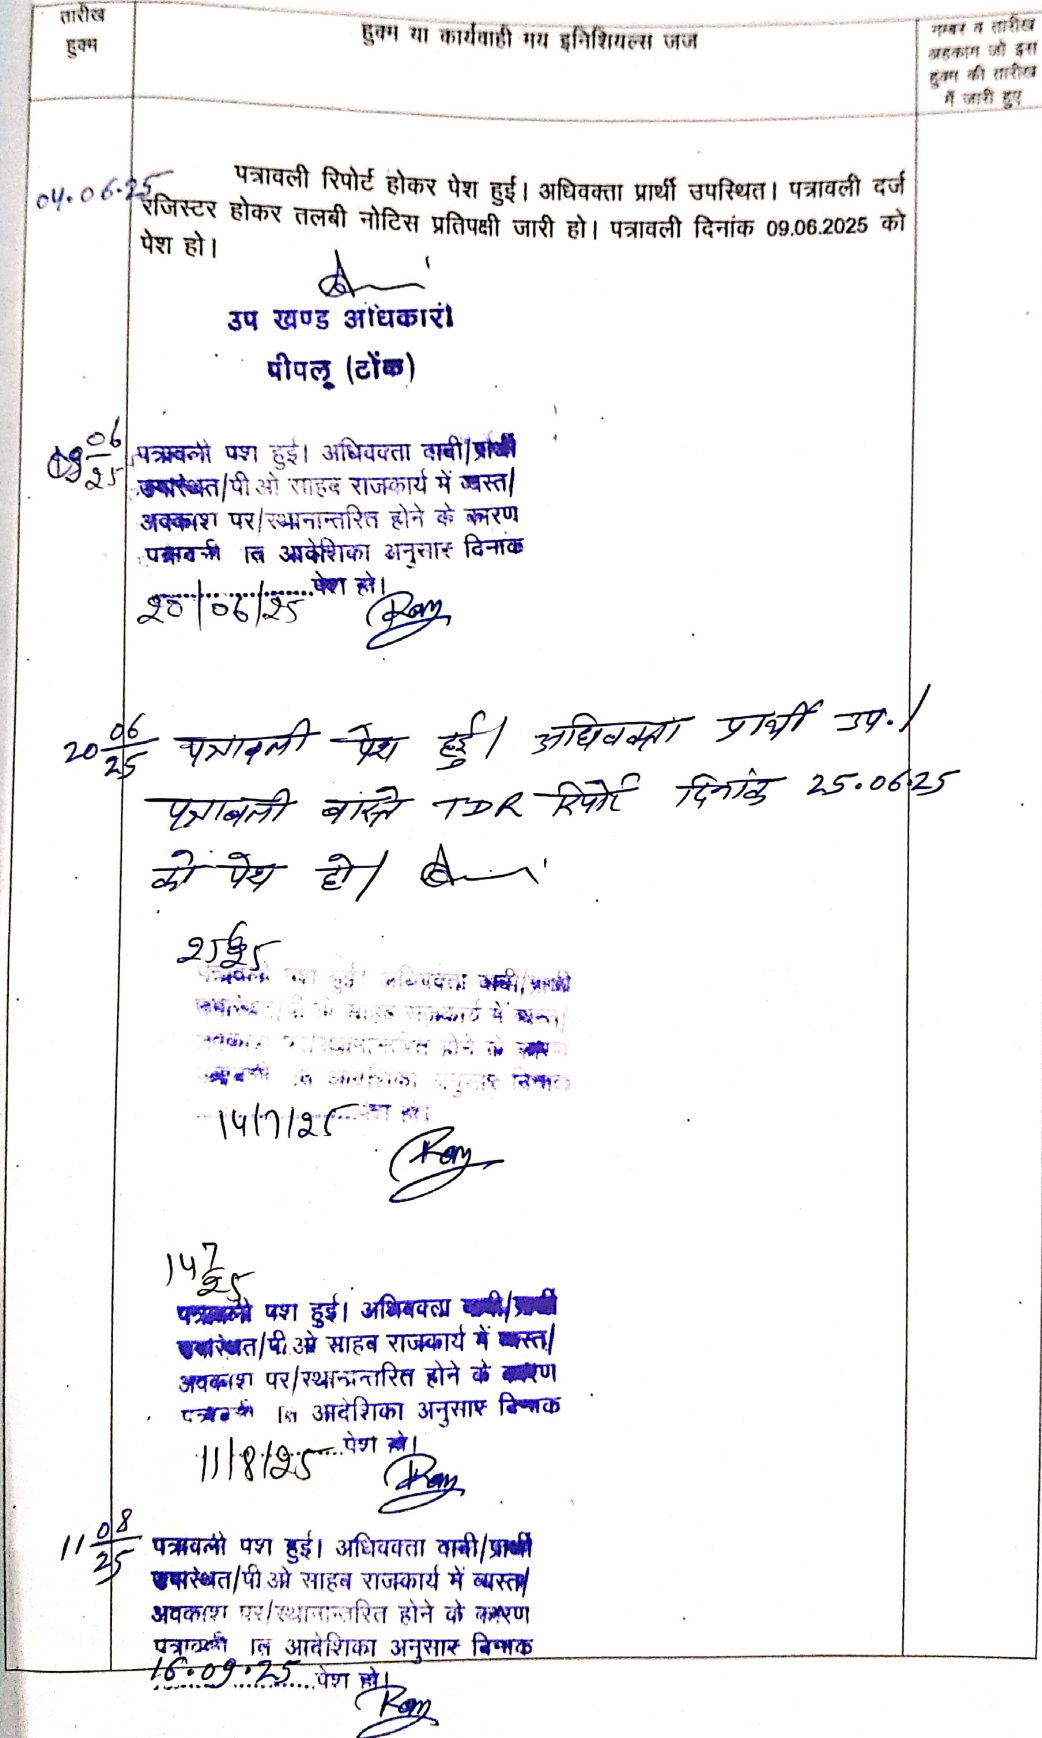 तारीख
हुक्म
हुक्म या कार्यवाही मय इनिशियल्स जज
नम्बर व तारीख
अहकाम जो इस
हुक्म की तारीख
में जारी हुए
04.06.25
पत्रावली रिपोर्ट होकर पेश हुई। अधिवक्ता प्रार्थी उपस्थित। पत्रावली दर्ज
रजिस्टर होकर तलबी नोटिस प्रतिपक्षी जारी हो। पत्रावली दिनांक 09.06.2025 को
पेश हो।
उप खण्ड अधिकारी
पीपलू (टोंक)
09 06/25
पत्रावली पेश हुई। अधिवक्ता वादी/प्रार्थी
उपस्थित/पी ओ साहब राजकार्य में व्यस्त/
अवकाश पर/स्थानान्तरित होने के कारण
पत्रावली आदेशिका अनुसार दिनांक
....................पेश हो।
20/06/25
20 06/25
पत्रावली पेश हुई। अधिवक्ता प्रार्थी उप.।
पत्रावली वास्ते TDR रिपोर्ट दिनांक 25.06.25
को पेश हो।
25 6/25
पत्रावली पेश हुई। अधिवक्ता वादी/प्रार्थी
उपस्थित/पी ओ साहब राजकार्य में व्यस्त/
अवकाश पर/स्थानान्तरित होने के कारण
पत्रावली आदेशिका अनुसार दिनांक
....................पेश हो।
14/7/25
14 7/25
पत्रावली पेश हुई। अधिवक्ता वादी/प्रार्थी
उपस्थित/पी.ओ साहब राजकार्य में व्यस्त/
अवकाश पर/स्थानान्तरित होने के कारण
पत्रावली आदेशिका अनुसार दिनांक
....................पेश हो।
11/8/25
11 08/25
पत्रावली पेश हुई। अधिवक्ता वादी/प्रार्थी
उपस्थित/पी ओ साहब राजकार्य में व्यस्त/
अवकाश पर/स्थानान्तरित होने के कारण
पत्रावली आदेशिका अनुसार दिनांक
16.09.25 पेश हो।